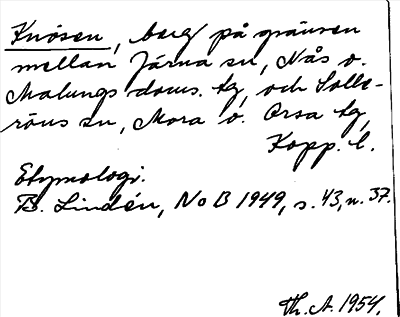 Knösen, berg på gränsen
mellan Järna sn, Nås o.
Malungs doms. tg, och Solle-
röns sn, Mora o. Orsa tg,
Kopp. l.
Etymologi.
B. Lindén, NoB 1949, s. 43, n. 37.
Th. A. 1954.